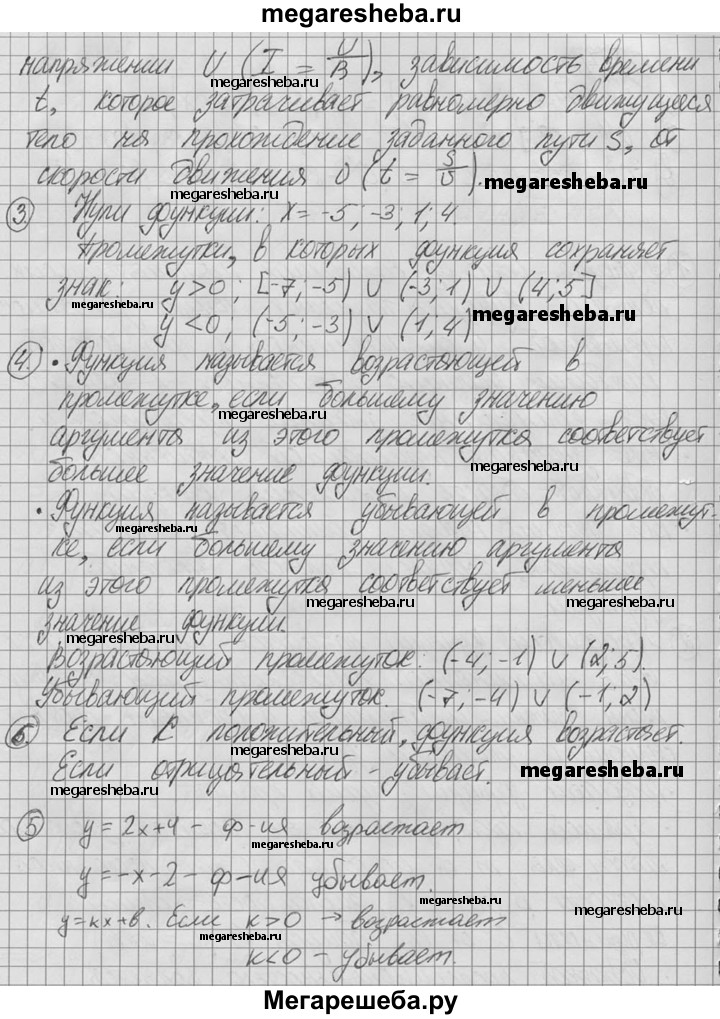 megaresheba.ru
напряжении U (I = U/B), зависимость времени
megaresheba.ru megaresheba.ru
t, которое затрачивает равномерно движущееся
тело на прохождение заданного пути S, от
скорости движения υ (t = S/υ). megaresheba.ru
megaresheba.ru
3 Нули функции: x = -5; -3; 1; 4.
Промежутки, в которых функция сохраняет
знак: y>0; [-7; -5) ∪ (-3; 1) ∪ (4; 5]
megaresheba.ru megaresheba.ru
y<0, (-5; -3) ∪ (1; 4)
4. • Функция называется возрастающей в
промежутке, если большему значению
megaresheba.ru
аргумента из этого промежутка соответствует
большее значение функции. megaresheba.ru
• Функция называется убывающей в промежут-
megaresheba.ru megaresheba.ru
ке, если большему значению аргумента
из этого промежутка соответствует меньшее
megaresheba.ru megaresheba.ru
значение функции.
megaresheba.ru
Возрастающий промежуток: (-4; -1) ∪ (2; 5).
Убывающий промежуток. (-7; -4) ∪ (-1; 2)
5. Если k положительный, функция возрастает.
megaresheba.ru
Если отрицательный - убывает. megaresheba.ru
megaresheba.ru
5 y = 2x+4 - ф-ия возрастает
megaresheba.ru
y = -x-2 - ф-ия убывает.
megaresheba.ru
y = kx+в. Если k>0 → возрастает
megaresheba.ru megaresheba.ru
k<0 - убывает.
Мегарешеба.ру